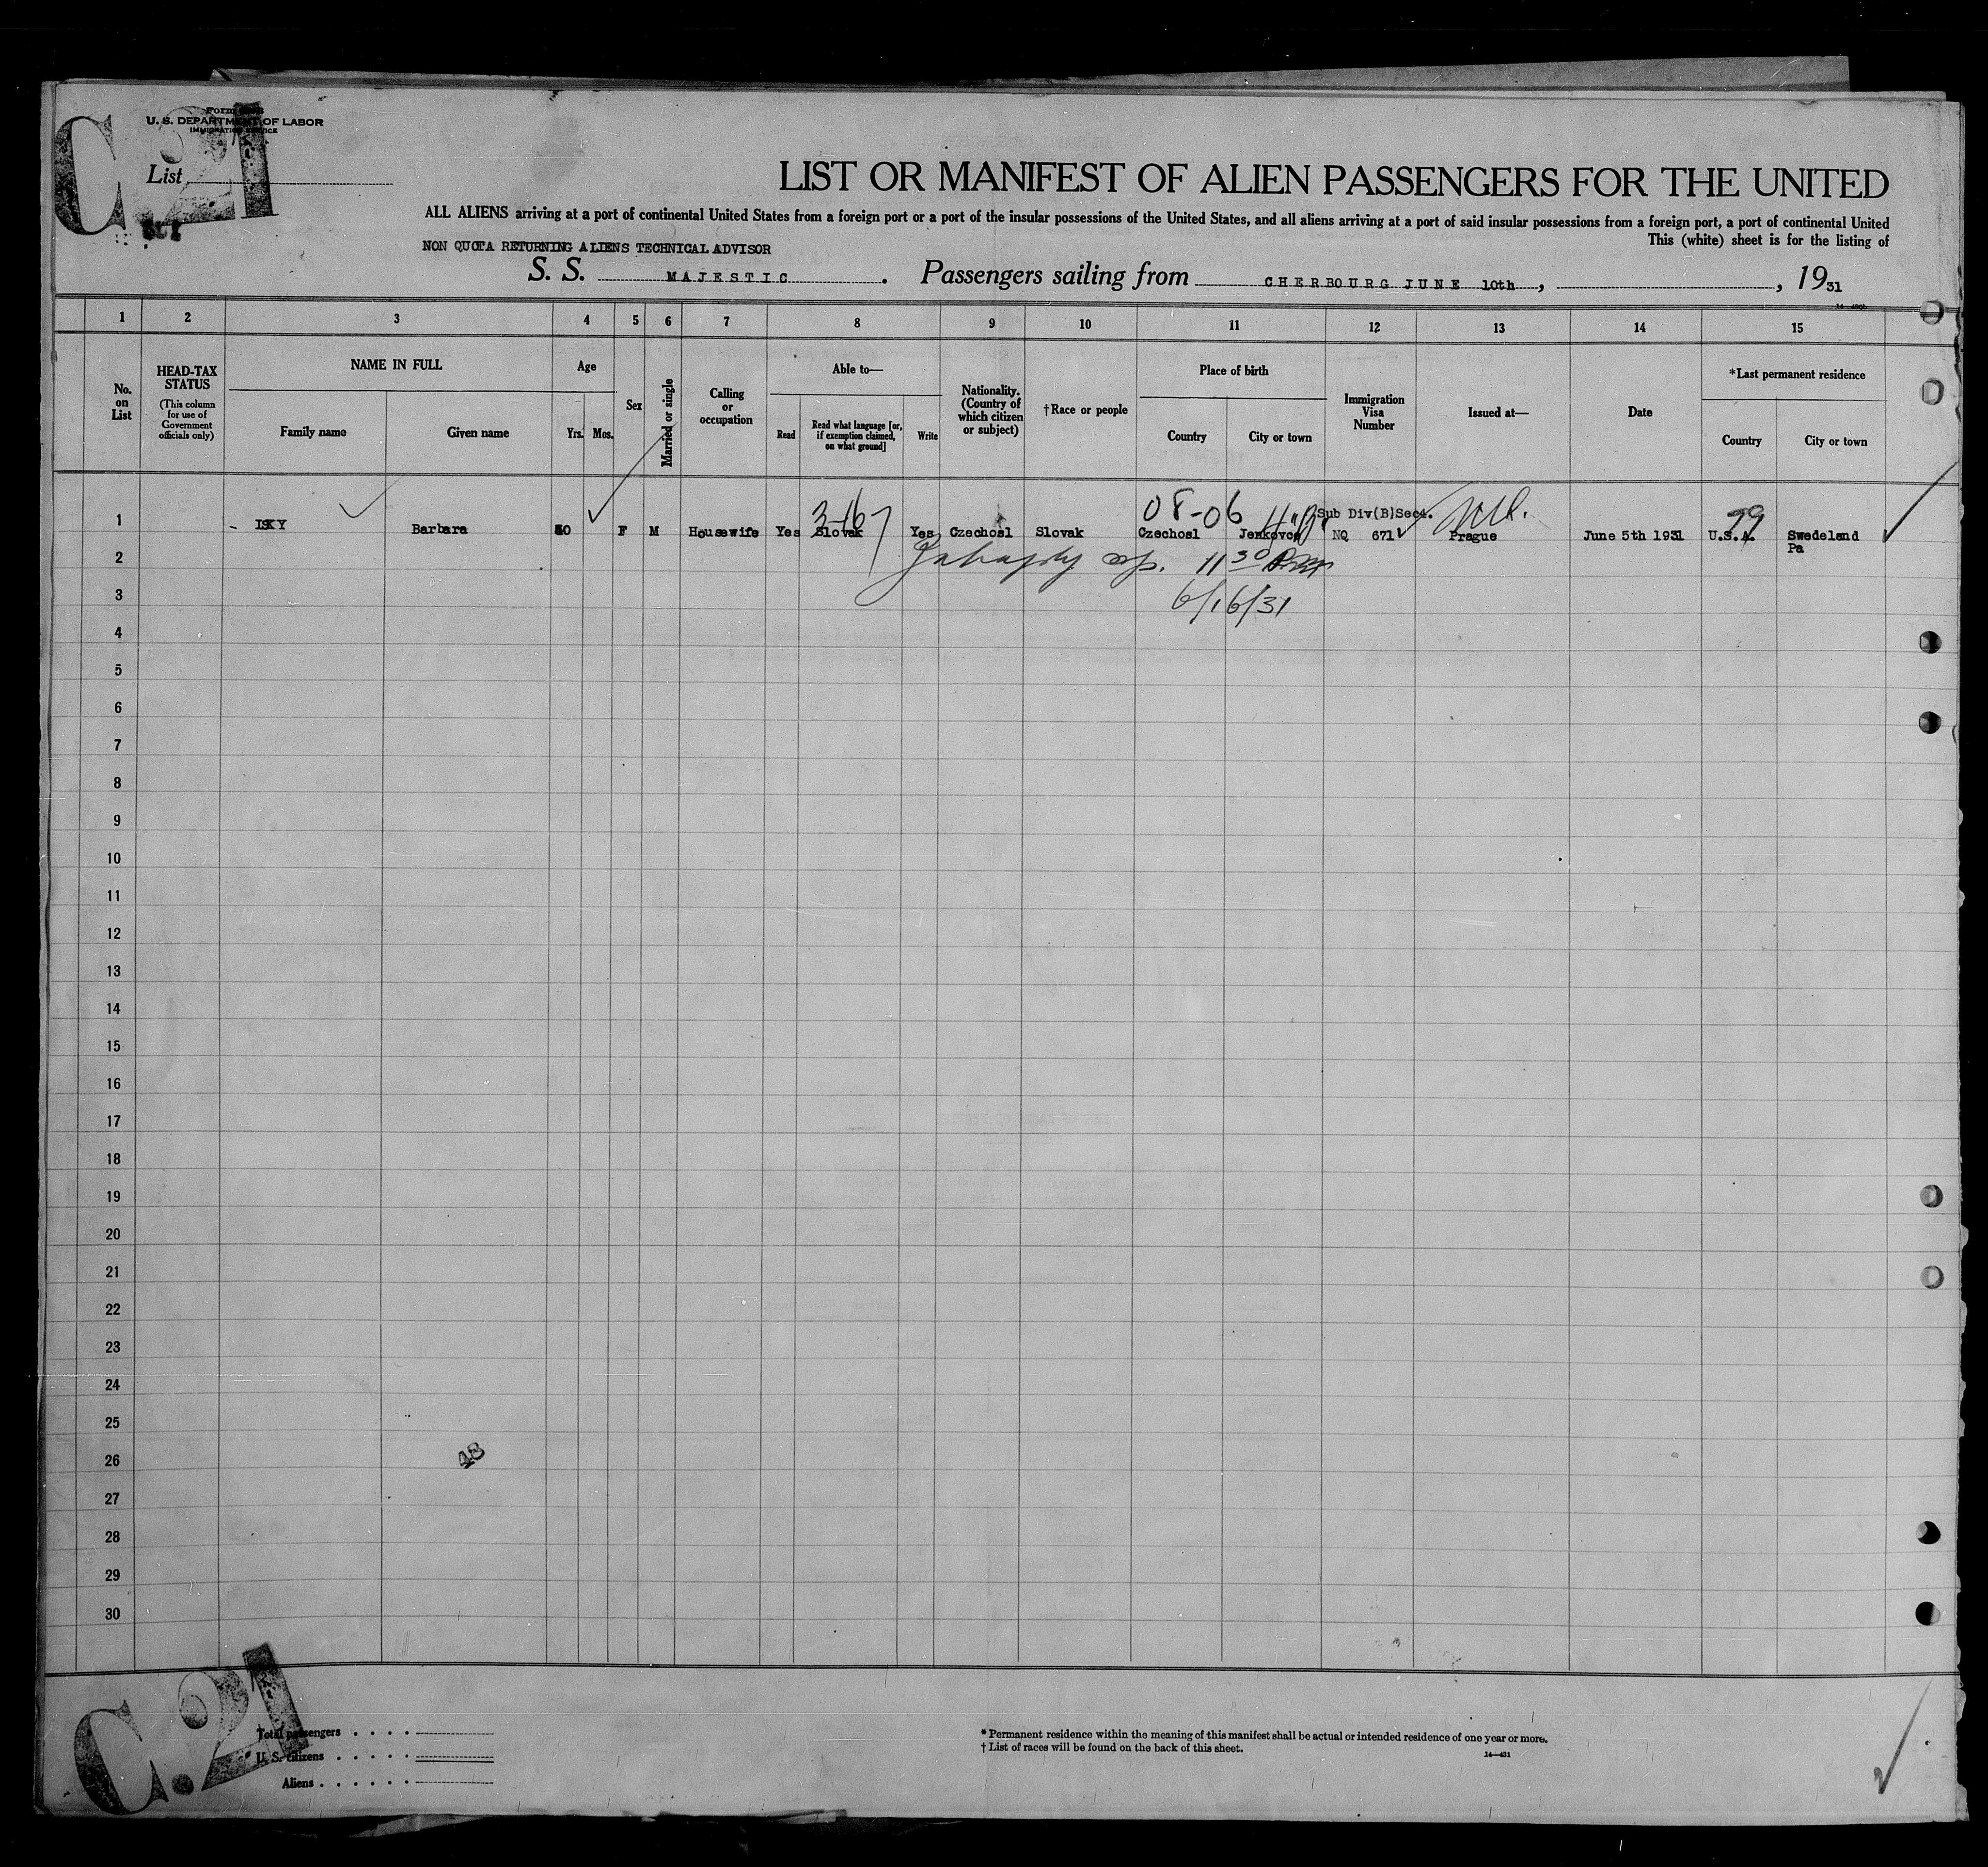 Form
U. S. DEPARTMENT OF LABOR
IMMIGRATION SERVICE
C.21
List
LIST OR MANIFEST OF ALIEN PASSENGERS FOR THE UNITED
ALL ALIENS arriving at a port of continental United States from a foreign port or a port of the insular possessions of the United States, and all aliens arriving at a port of said insular possessions from a foreign port, a port of continental United
This (white) sheet is for the listing of
NON QUOTA RETURNING ALIENS TECHNICAL ADVISOR
S. S. MAJESTIC. Passengers sailing from CHERBOURG JUNE 10th, , 1931
1 2 3 4 5 6 7 8 9 10 11 12 13 14 15
No. on List
HEAD-TAX STATUS (This column for use of Government officials only)
NAME IN FULL
Family name Given name
Age
Yrs. Mos.
Sex
Married or single
Calling or occupation
Able to—
Read
Read what language [or, if exemption claimed, on what ground]
Write
Nationality. (Country of which citizen or subject)
†Race or people
Place of birth
Country City or town
Immigration Visa Number
Issued at—
Date
*Last permanent residence
Country City or town
3-167 08-06 Sub Div(B)Sec4. 99
1 - ISKY Barbara F M Housewife Yes Slovak Yes Czechosl Slovak Czechosl Jenkovce NQ 671 Prague June 5th 1931 U.S.A. Swedeland Pa
2 11 30
3 6/16/31
4
5
6
7
8
9
10
11
12
13
14
15
16
17
18
19
20
21
22
23
24
25
26 48
27
28
29
30
C.21
Total passengers . . . .
U. S. citizens . . . . .
Aliens . . . . . .
* Permanent residence within the meaning of this manifest shall be actual or intended residence of one year or more.
† List of races will be found on the back of this sheet.
14—431